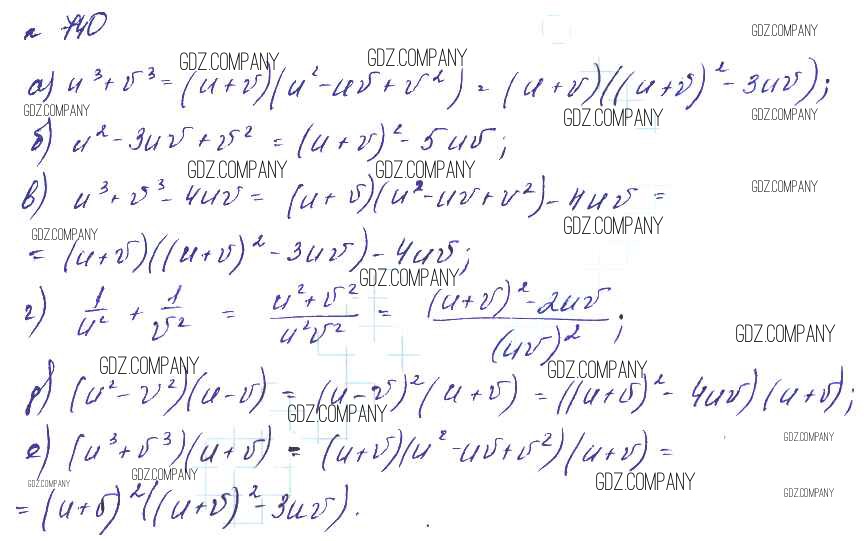 № 740
GDZ.COMPANY
GDZ.COMPANY GDZ.COMPANY
а) u³ + v³ = (u + v)(u² - uv + v²) = (u + v)((u + v)² - 3uv);
GDZ.COMPANY GDZ.COMPANY GDZ.COMPANY
б) u² - 3uv + v² = (u + v)² - 5uv;
GDZ.COMPANY GDZ.COMPANY GDZ.COMPANY
в) u³ + v³ - 4uv = (u + v)(u² - uv + v²) - 4uv =
GDZ.COMPANY GDZ.COMPANY
= (u + v)((u + v)² - 3uv) - 4uv;
GDZ.COMPANY
г) 1/u² + 1/v² = (u² + v²)/(u²v²) = ((u + v)² - 2uv)/(uv)²;
GDZ.COMPANY
GDZ.COMPANY GDZ.COMPANY
д) (u² - v²)(u - v) = (u - v)²(u + v) = ((u + v)² - 4uv)(u + v);
GDZ.COMPANY GDZ.COMPANY
е) (u³ + v³)(u + v) = (u + v)(u² - uv + v²)(u + v) =
GDZ.COMPANY GDZ.COMPANY GDZ.COMPANY GDZ.COMPANY
= (u + v)²((u + v)² - 3uv).